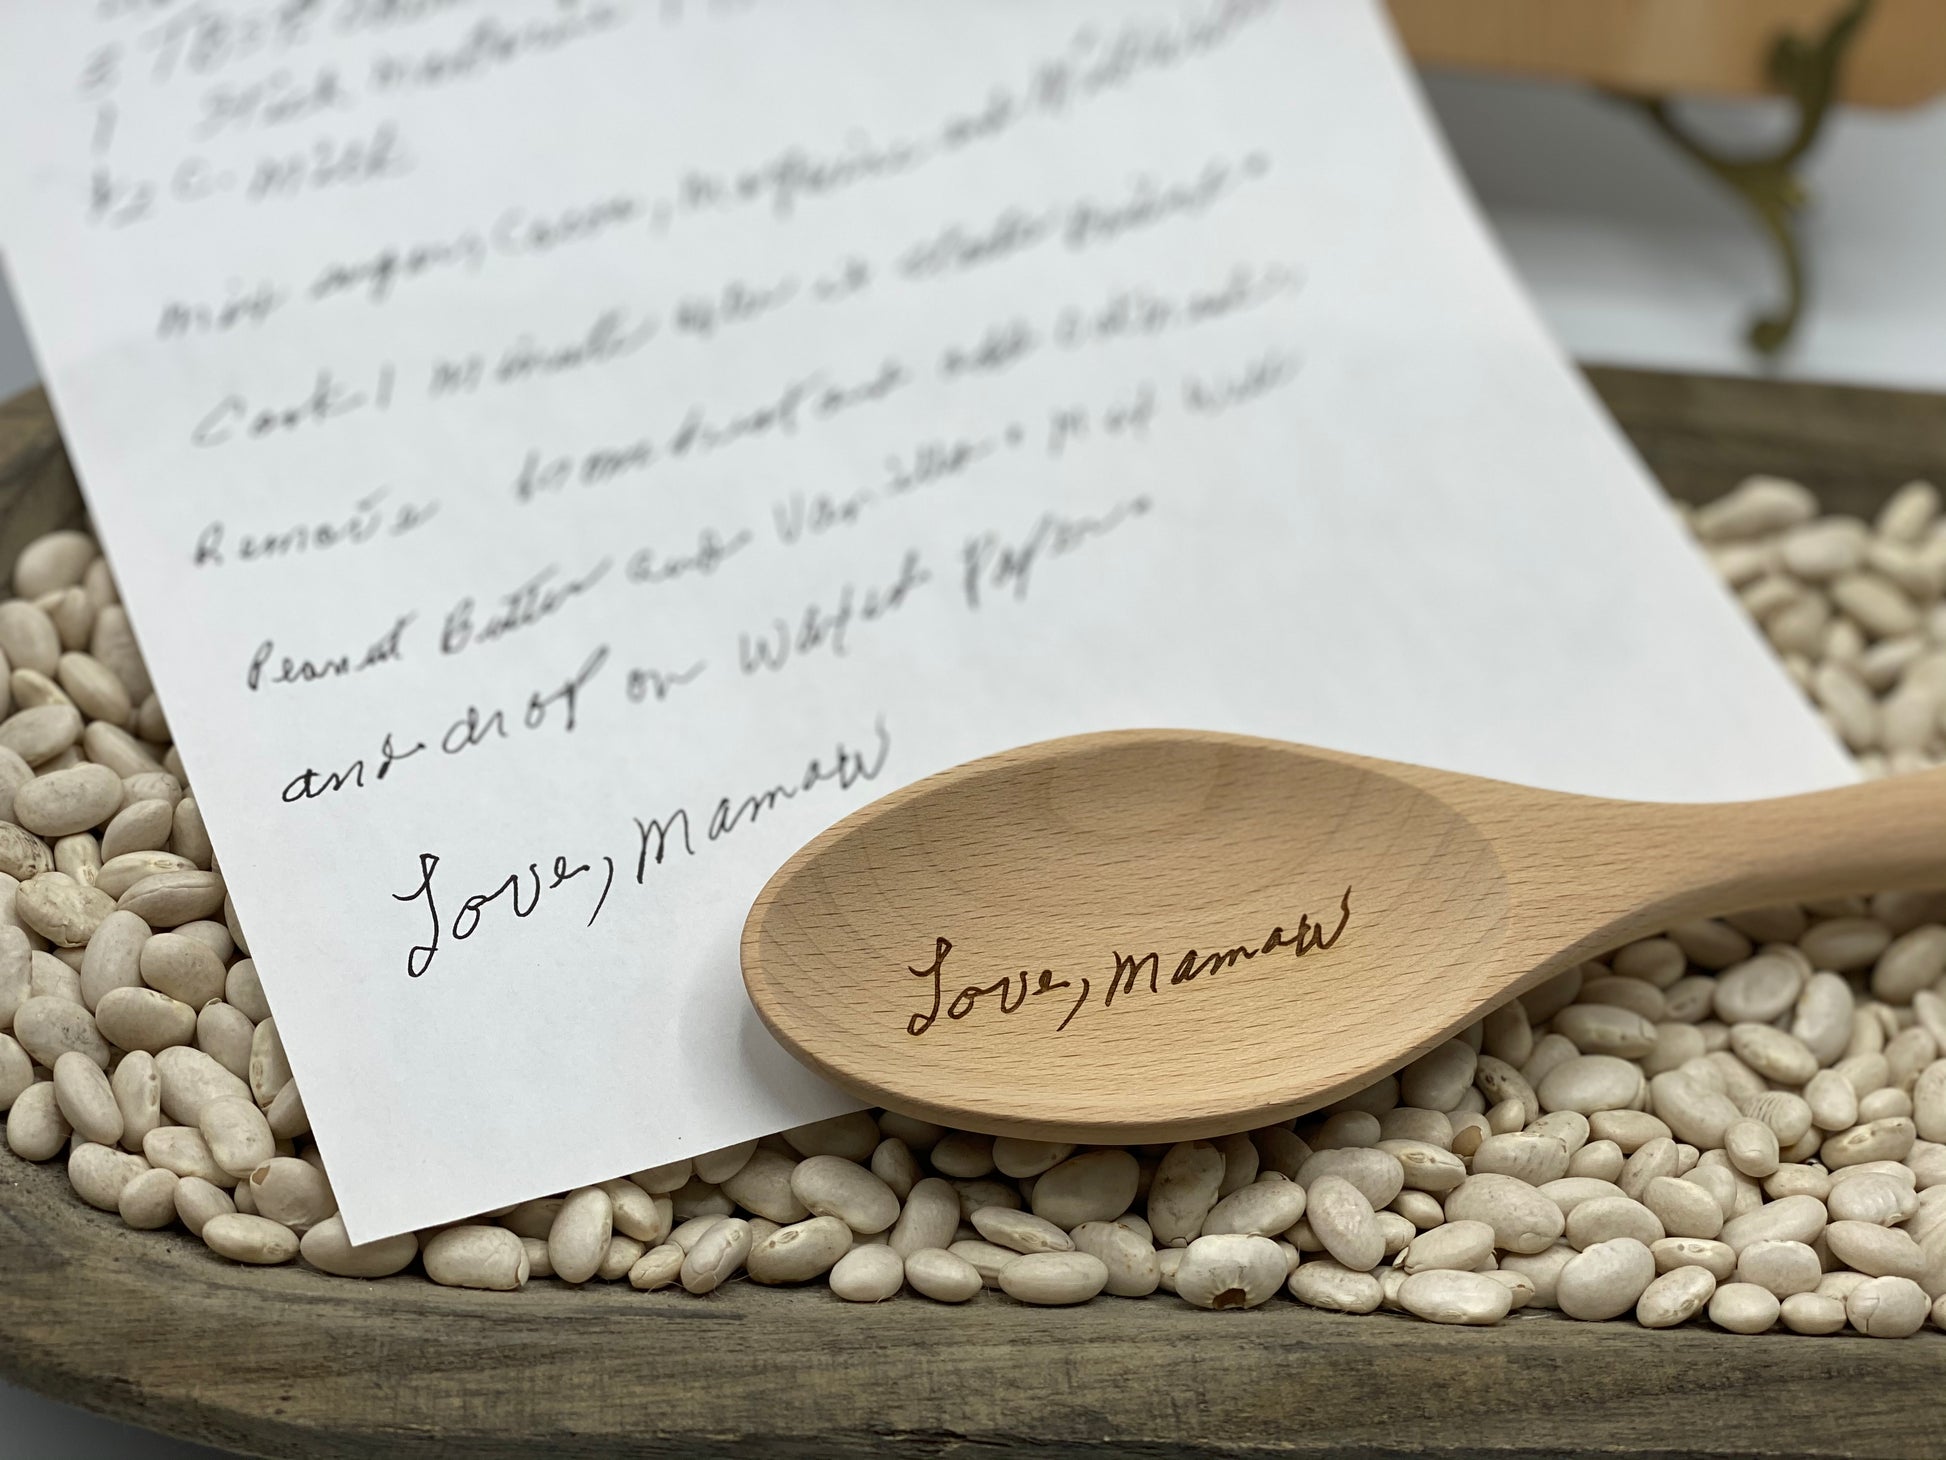 1 Stick
1/2 c. milk
Mix sugar, Cocoa, Margarine and Milk
Cook 1 minute after it starts
Remove from heat and add
Peanut Butter and Vanilla. Mix Well
and drop on Waxed Paper.
Love, Mamaw
Love, Mamaw